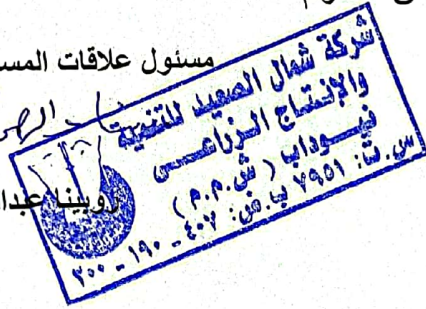 مسئول علاقات
شركة شمال الصعيد للتنمية
والإنتاج الزراعى
نيوداب (ش.م.م)
س.ت: ٧٩٥١ ب.ض: ٤٠٧ - ١٩٠ - ٢٠٠
روبينا